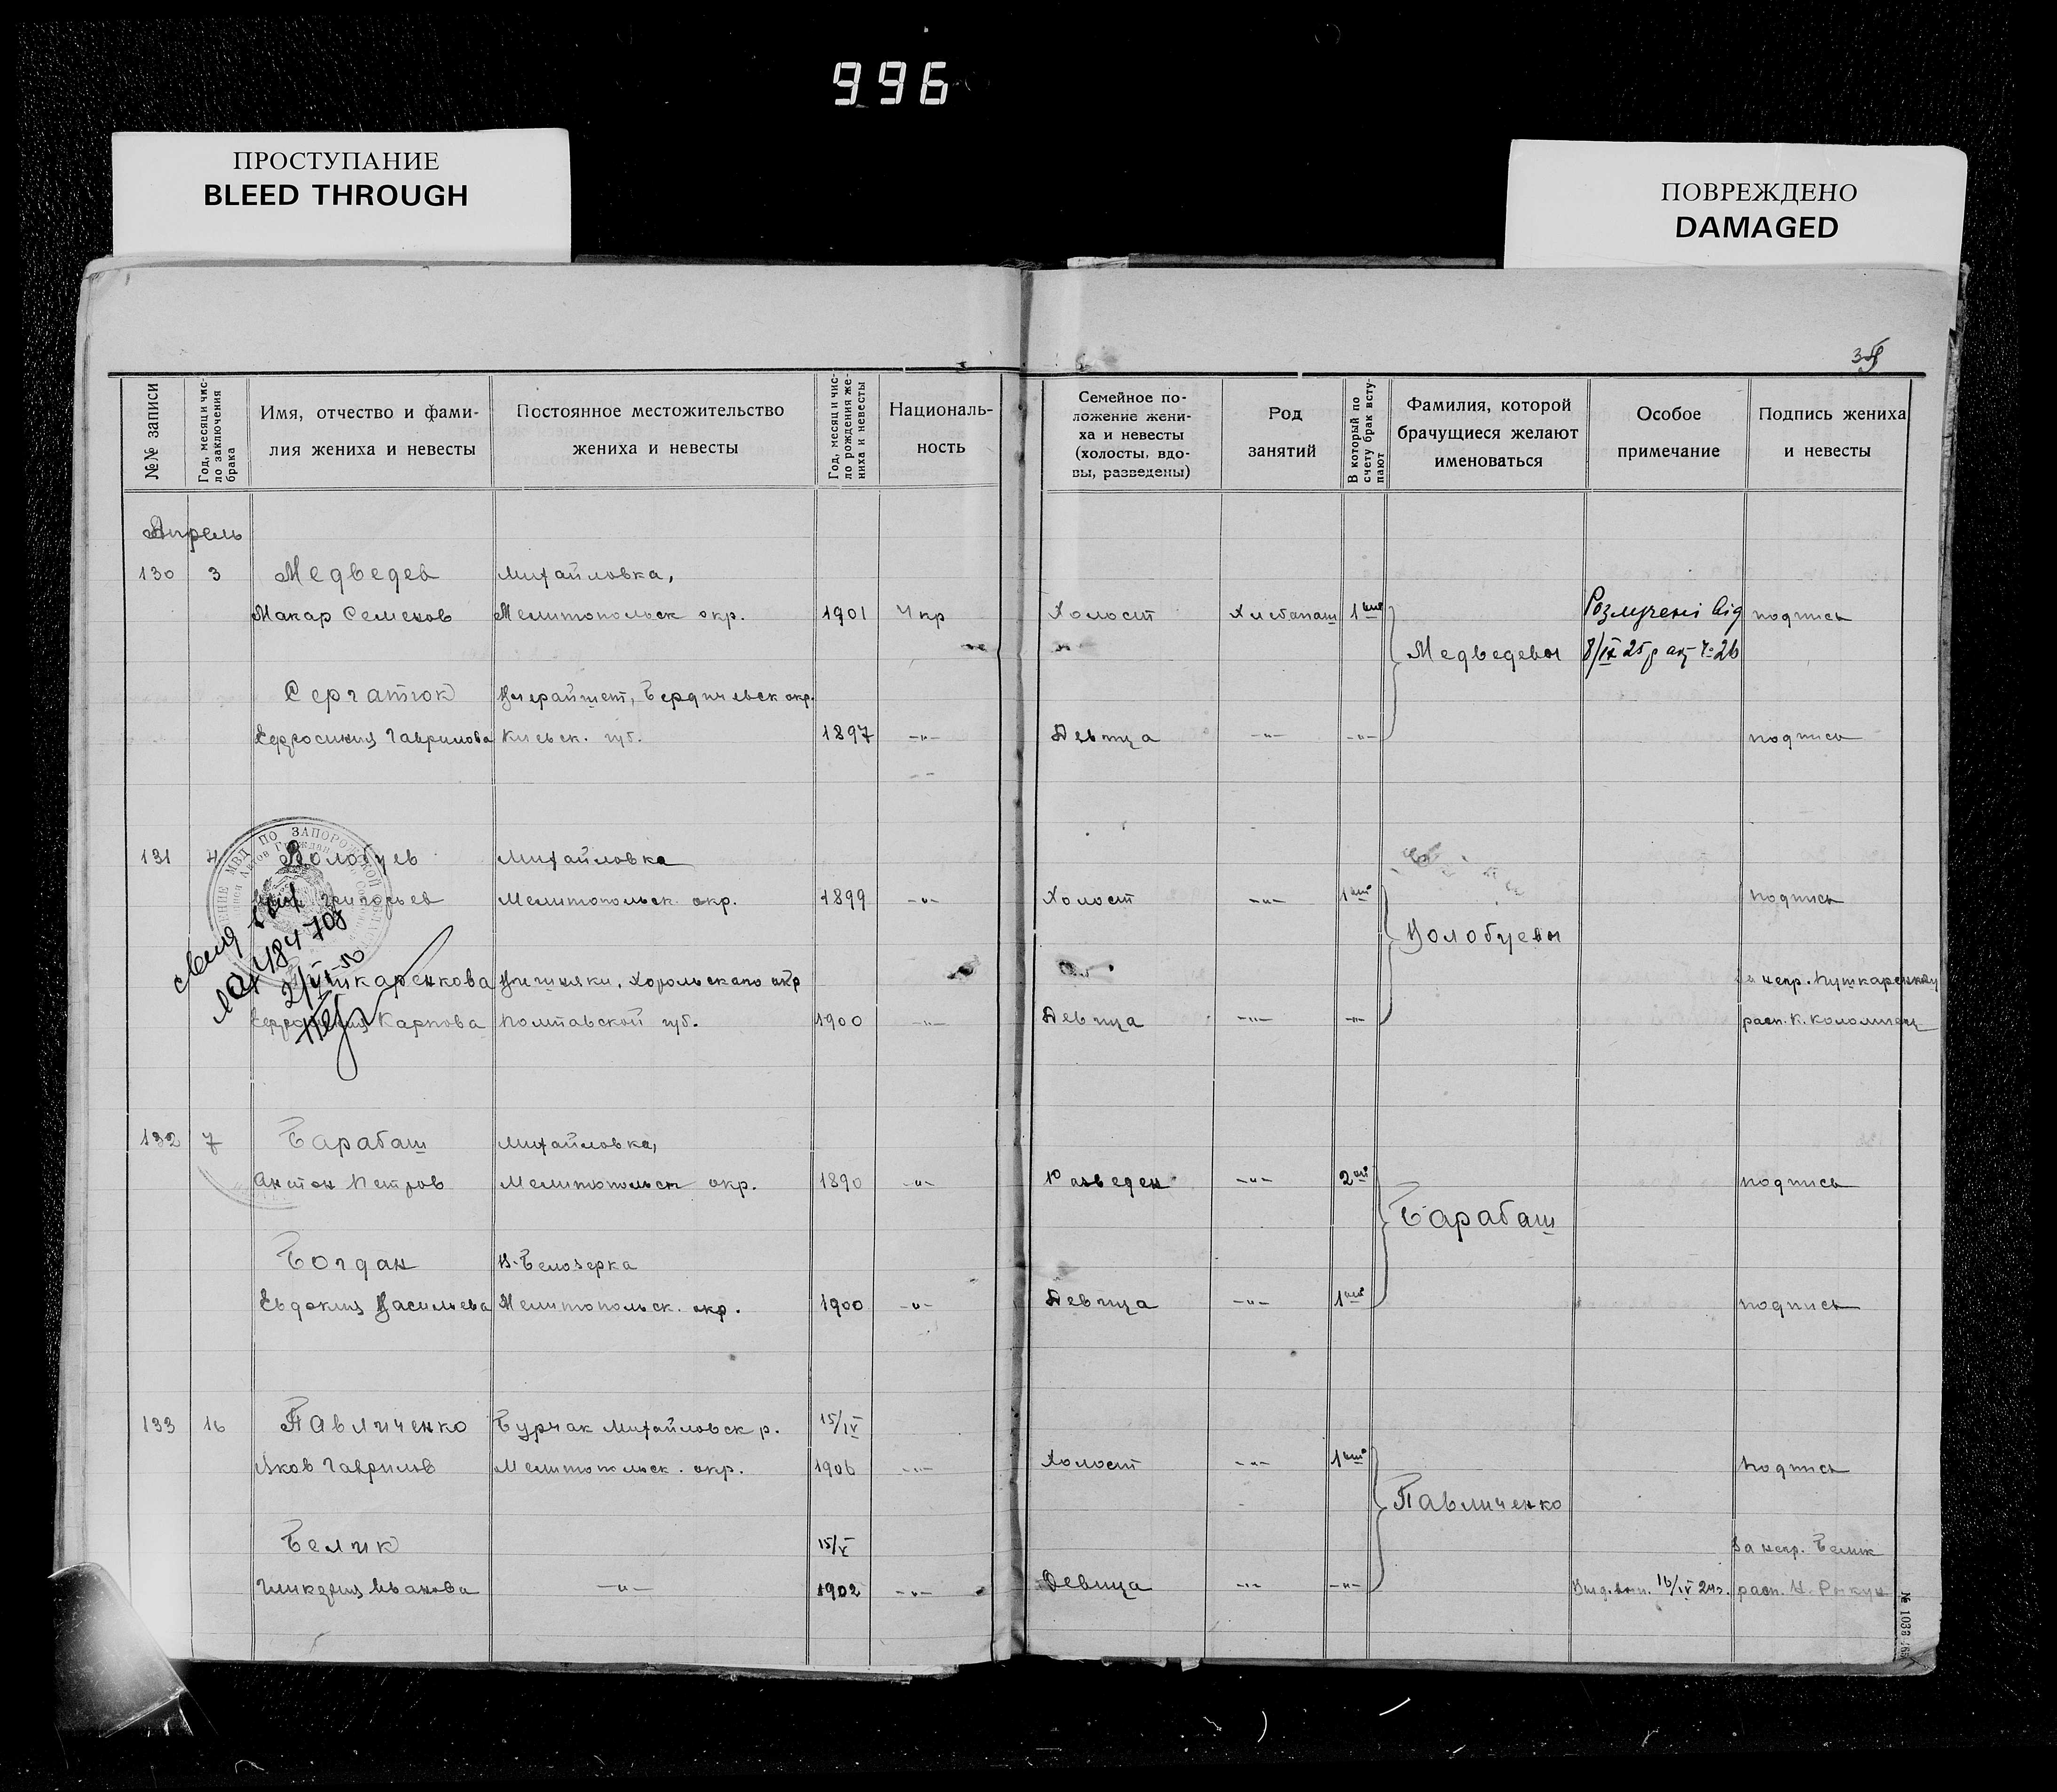 996
ПРОСТУПАНИЕ
BLEED THROUGH
ПОВРЕЖДЕНО
DAMAGED
№№ записи
Год, месяц и чис-
ло заключения
брака
Имя, отчество и фами-
лия жениха и невесты
Постоянное местожительство
жениха и невесты
Год, месяц и чис-
ло рождения же-
ниха и невесты
Националь-
ность
Семейное по-
ложение жени-
ха и невесты
(холосты, вдо-
вы, разведены)
Род
занятий
В который по
счету брак всту-
пают
Фамилия, которой
брачущиеся желают
именоваться
Особое
примечание
Подпись жениха
и невесты
Апрель
130 3 Медведев Михайловка,
Макар Семенов Мелитопольск окр. 1901 Укр Холост Хлебопаш 1ый Розлучені від подпись
Медведевы 8/IX 25 р акт ч. 26
Сергатюк Бердичевск окр.
Евфросиния Гаврилова Киевск. губ. 1897 -"- Девица -"- -"- подпись
131 4 Волобуев Михайловка
Григорьев Мелитопольск. окр. 1899 -"- Холост -"- 1ый подпись
Волобуевы
Пушкаренкова Вишняки, Хорольского окр За непр. Пушкаренкову
Карпова Полтавской губ. 1900 -"- Девица -"- -"- расп. К. Коломиец
2/VI 50
132 7 Барабаш Михайловка,
Антон Петров Мелитопольск окр. 1890 -"- Разведен -"- 2ой подпись
Барабаш
Богдан В-Белозерка
Евдокия Васильева Мелитопольск. окр. 1900 -"- Девица -"- 1ый подпись
133 16 Павличенко Бурчак Михайловск р. 15/IV
Яков Гаврилов Мелитопольск. окр. 1906 -"- Холост -"- 1ый подпись
Павличенко
Белик 15/V За непр. Белик
Гликерия Иванова -"- 1902 -"- Девица -"- -"- Выд. вып. 16/IV 24г. расп.